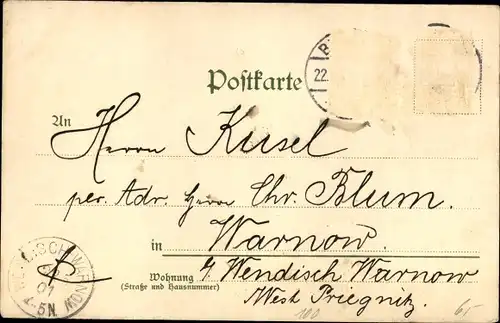 Postkarte
22.
An Herrn Kusel
per. Adr. Herrn Chr. Blum.
in Warnow.
Wohnung
(Straße und Hausnummer)
Wendisch Warnow
West Priegnitz.
2-5N.
100
65